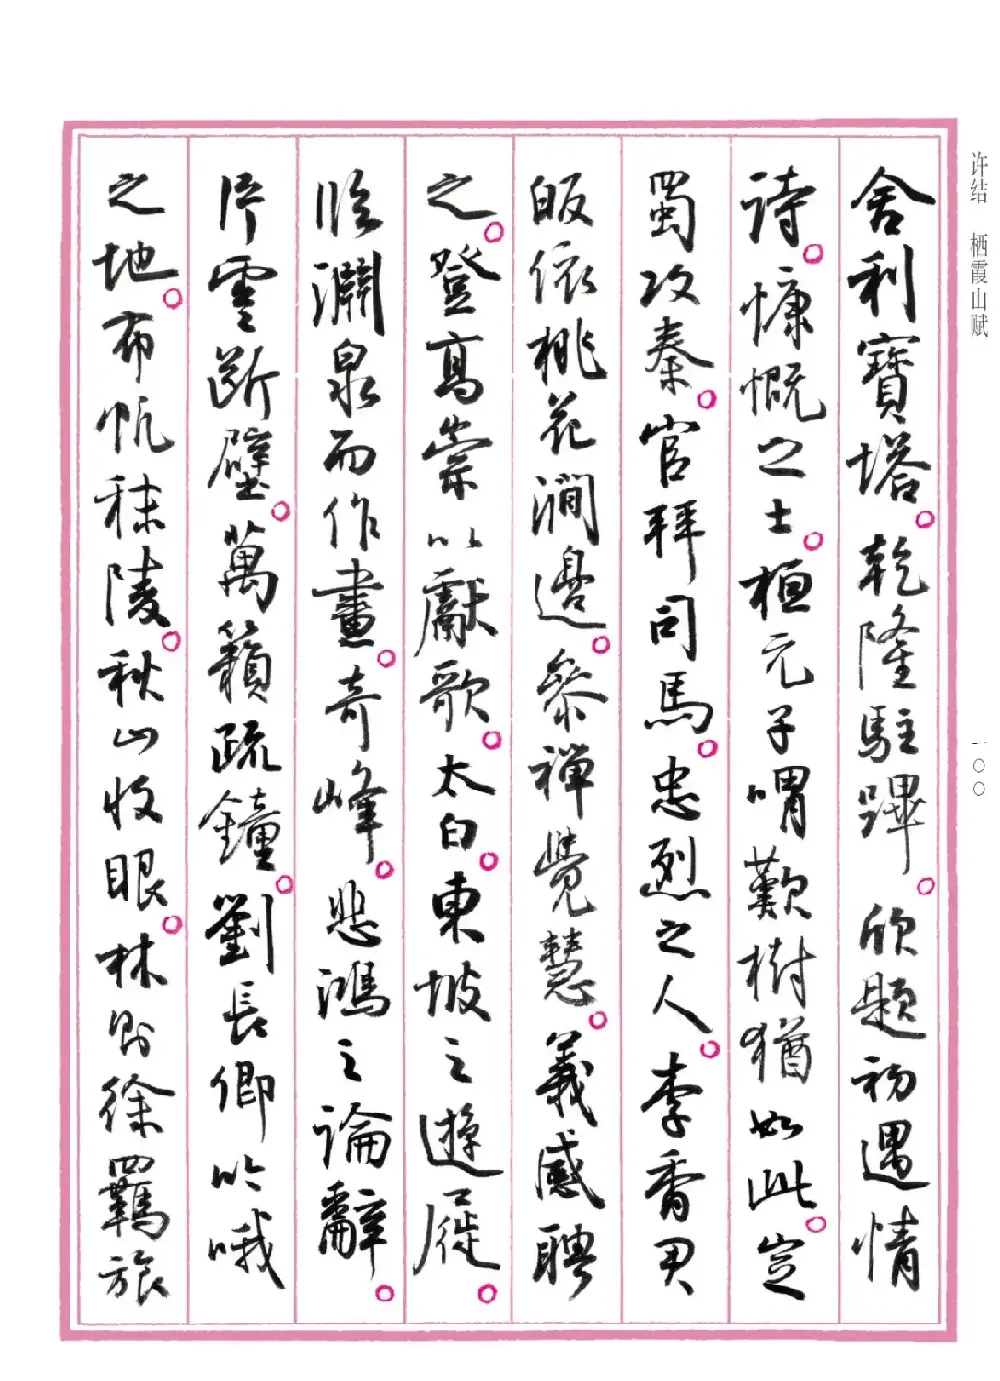 许结 栖霞山赋
舍利寶塔。乾隆駐蹕。欣題初遇情
詩。慷慨之士。桓元子喟歎樹猶如此。定
蜀攻秦。官拜司馬。忠烈之人。李香君
皈依桃花澗邊。參禪覺慧。義感聘
之。登高崇以獻歌。太白。東坡之遊屐。
臨瀾泉而作畫。奇峰。悲鴻之論辭。
片雲斷壁。萬籟疏鐘。劉長卿吟哦
之地。布帆秣陵。秋山收眼。林則徐羈旅
一〇〇